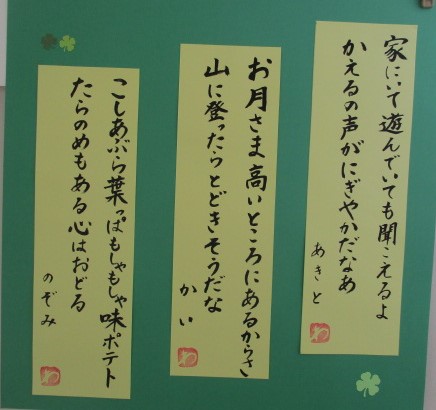 家にいて遊んでいても聞こえるよ
かえるの声がにぎやかだなあ
あきと
わ
お月さま高いところにあるからさ
山に登ったらとどきそうだな
かい
わ
こしあぶら葉っぱもしゃもしゃ味ポテト
たらのめもある心はおどる
のぞみ
わ